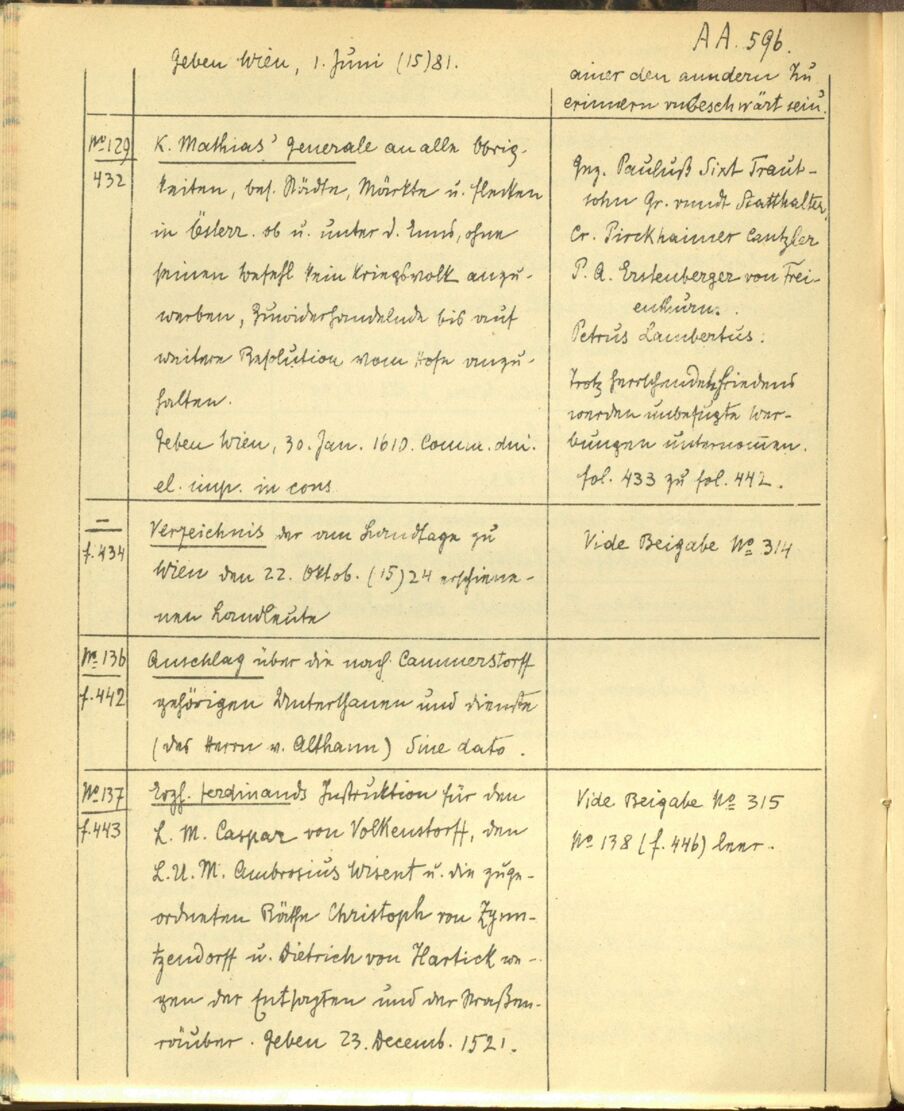 AA. 596.
Geben Wien, 1. Juni (15)81.
ainer den anndern zu
erinnern unbeschwärt sein.
No 129
432
K. Mathias' Generale an alle Obrig-
keiten, bes. Städte, Märkte u. Flecken
in Österr. ob u. unter d. Enns, ohne
seinen Befehl kein Kriegsvolk anzu-
werben, Zuwiderhandelnde bis auf
weitere Resolution vom Hofe anzu-
halten.
Geben Wien, 30. Jan. 1610. Comm. dni.
el. imp. in cons
Gez. Pauluß Sixt Traut-
sohn Gr. vnndt Statthalter,
Cr. Pirckhaimer Cantzler
P. A. Erstenberger von Frei-
enthurn.
Petrus Lambertus:
Trotz herrschenden Friedens
werden unbefugte Wer-
bungen unternommen.
fol. 433 zu fol. 442.
—
f. 434
Verzeichnis der am Landtage zu
Wien den 22. Oktob. (15)24 erschiene-
nen Landleute
Vide Beigabe No 314
No 136
f. 442
Anschlag über die nach Cammerstorff
gehörigen Unterthanen und Dienste
(des Herrn v. Althann) Sine dato.
No 137
f. 443
Erzh. Ferdinands Instruktion für den
L. M. Caspar von Volkenstorff, den
L. U. M. Ambrosius Wisent u. die zuge-
ordneten Räthe Christoph von Zynn-
tzendorff u. Dietrich von Hartick we-
gen der Entsagten und der Straßen-
räuber. Geben 23. Decemb. 1521.
Vide Beigabe No 315
No 138 (f. 446) leer.